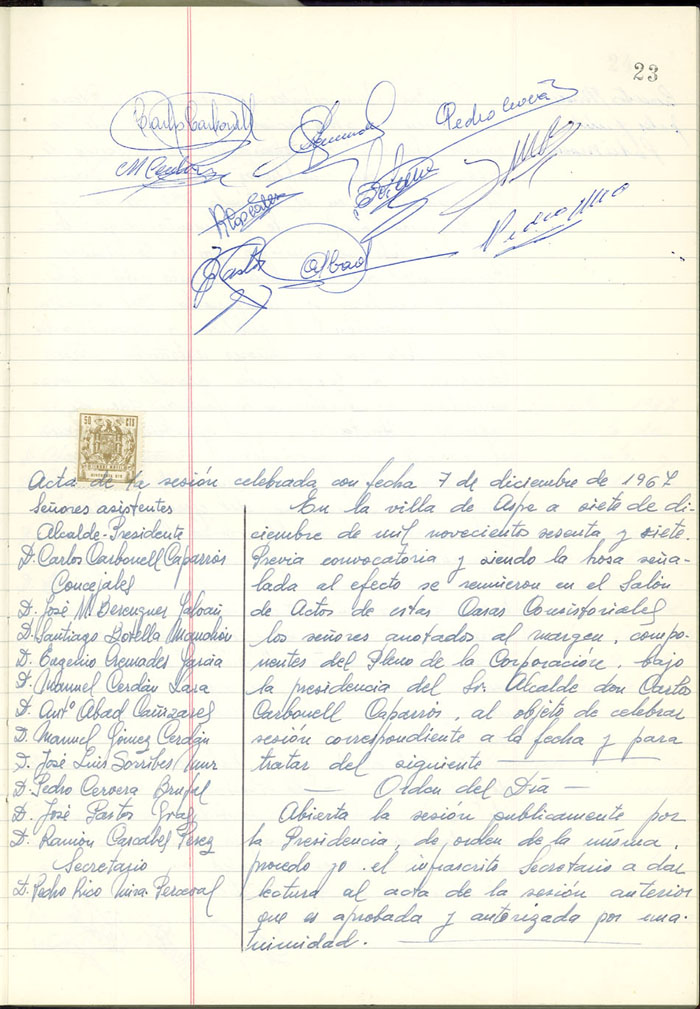 23
Carlos Carbonell
Pedro Cerverá
M Cerdán
Pastor
Abad
Pedro Rico
50 CTS
Acta de la sesión celebrada con fecha 7 de diciembre de 1967
Señores asistentes
Alcalde-Presidente
D. Carlos Carbonell Caparrós
Concejales
D. José Mª Berenguer Galván
D. Santiago Botella Manchón
D. Eugenio Cremades García
D. Manuel Cerdán Lara
D. Antº Abad Cañizares
D. Manuel Gómez Cerdán
D. José Luis Sorribes Mur
D. Pedro Cervera Brufal
D. José Pastor Gras
D. Ramón Cascales Pérez
Secretario
D. Pedro Rico Mira-Perceval
En la villa de Aspe a siete de di-
ciembre de mil novecientos sesenta y siete.
Previa convocatoria y siendo la hora seña-
lada al efecto se reunieron en el Salón
de Actos de estas Casas Consistoriales
los señores anotados al margen, compo-
nentes del Pleno de la Corporación, bajo
la presidencia del Sr. Alcalde don Carlos
Carbonell Caparrós, al objeto de celebrar
sesión correspondiente a la fecha y para
tratar del siguiente
— Orden del Día —
Abierta la sesión publicamente por
la Presidencia, de orden de la misma,
procedo yo el infrascrito Secretario a dar
lectura al acta de la sesión anterior
que es aprobada y autorizada por una-
nimidad.